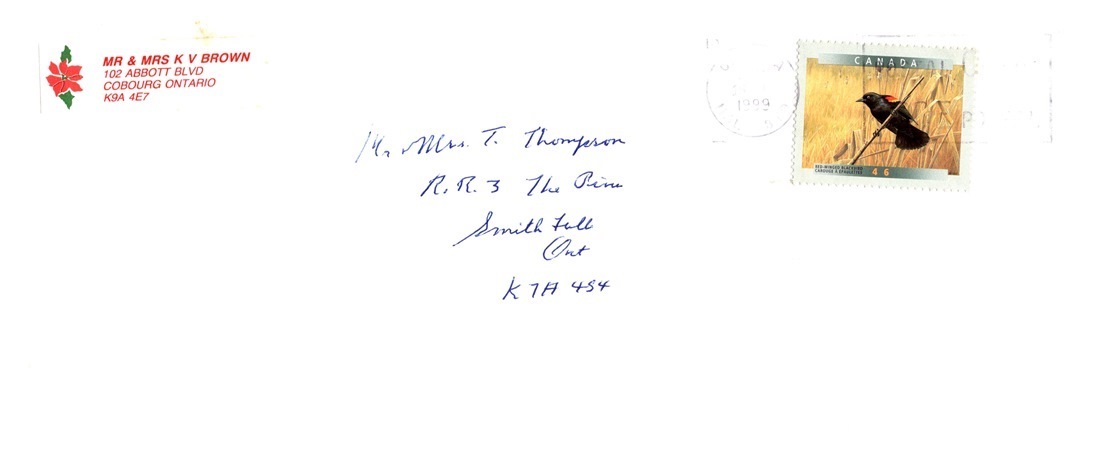 MR & MRS K V BROWN
102 ABBOTT BLVD
COBOURG ONTARIO
K9A 4E7
1999
CANADA
RED-WINGED BLACKBIRD
CAROUGE À ÉPAULETTES
46
Mr & Mrs. T. Thompson
R.R. 3 The Pines
Smith Falls
Ont
K7A 4S4